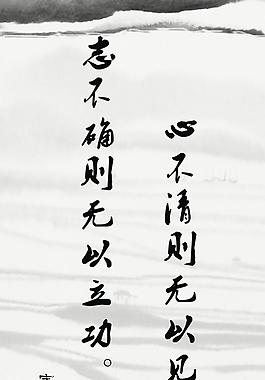 心不清则无以见
志不确则无以立功。